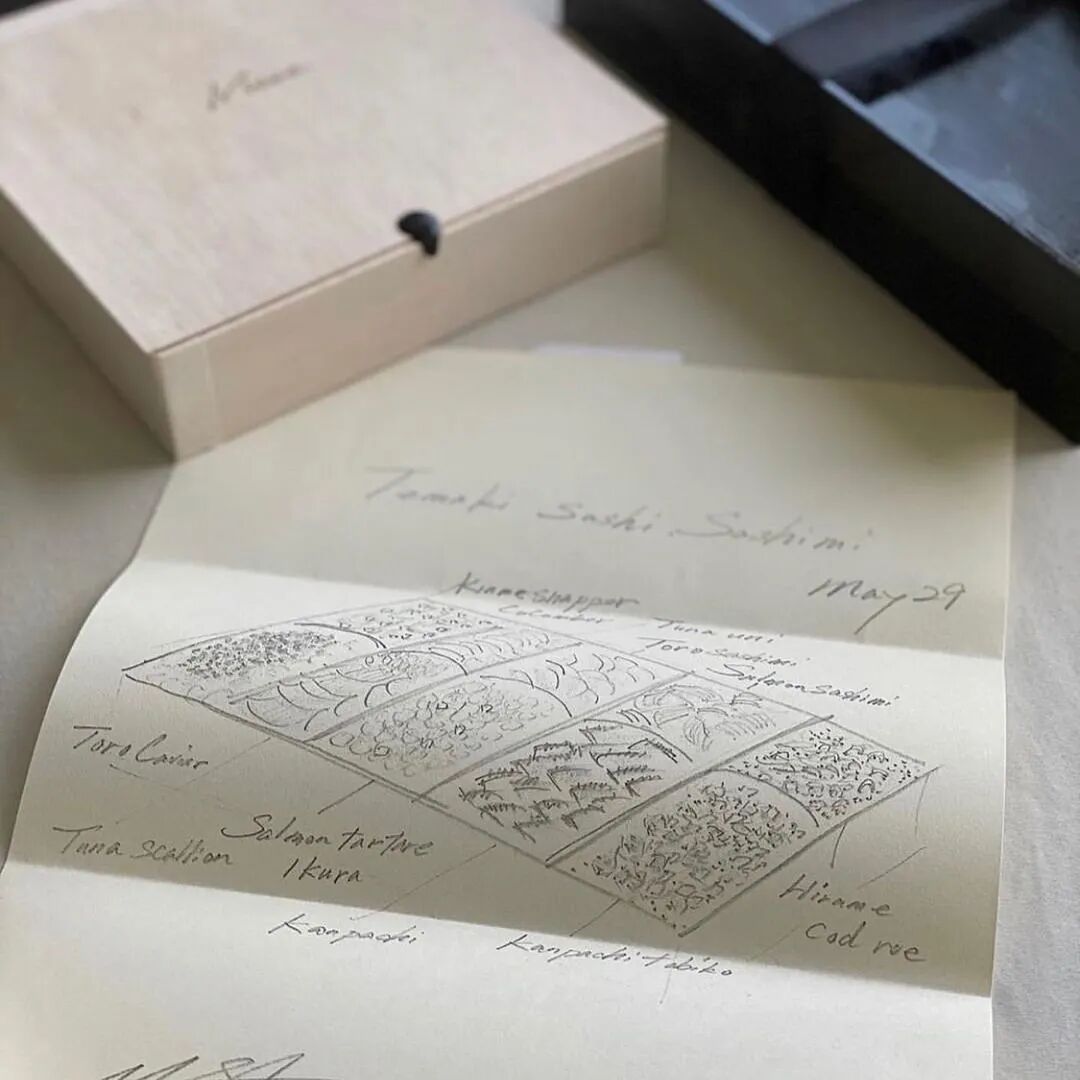 Temaki Sashi Sashimi
May 29
Kinmesnapper
Cucumber
Tuna uni
Toro sashimi
Salmon sashimi
Toro Caviar
Tuna scallion
Salmon tartare
Ikura
Kanpachi
Kanpachi tobiko
Hirame
Cod roe